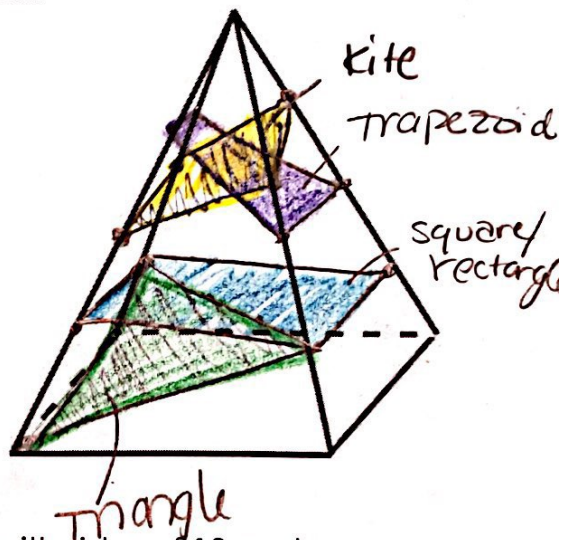 Kite
Trapezoid
square/
rectangle
Triangle